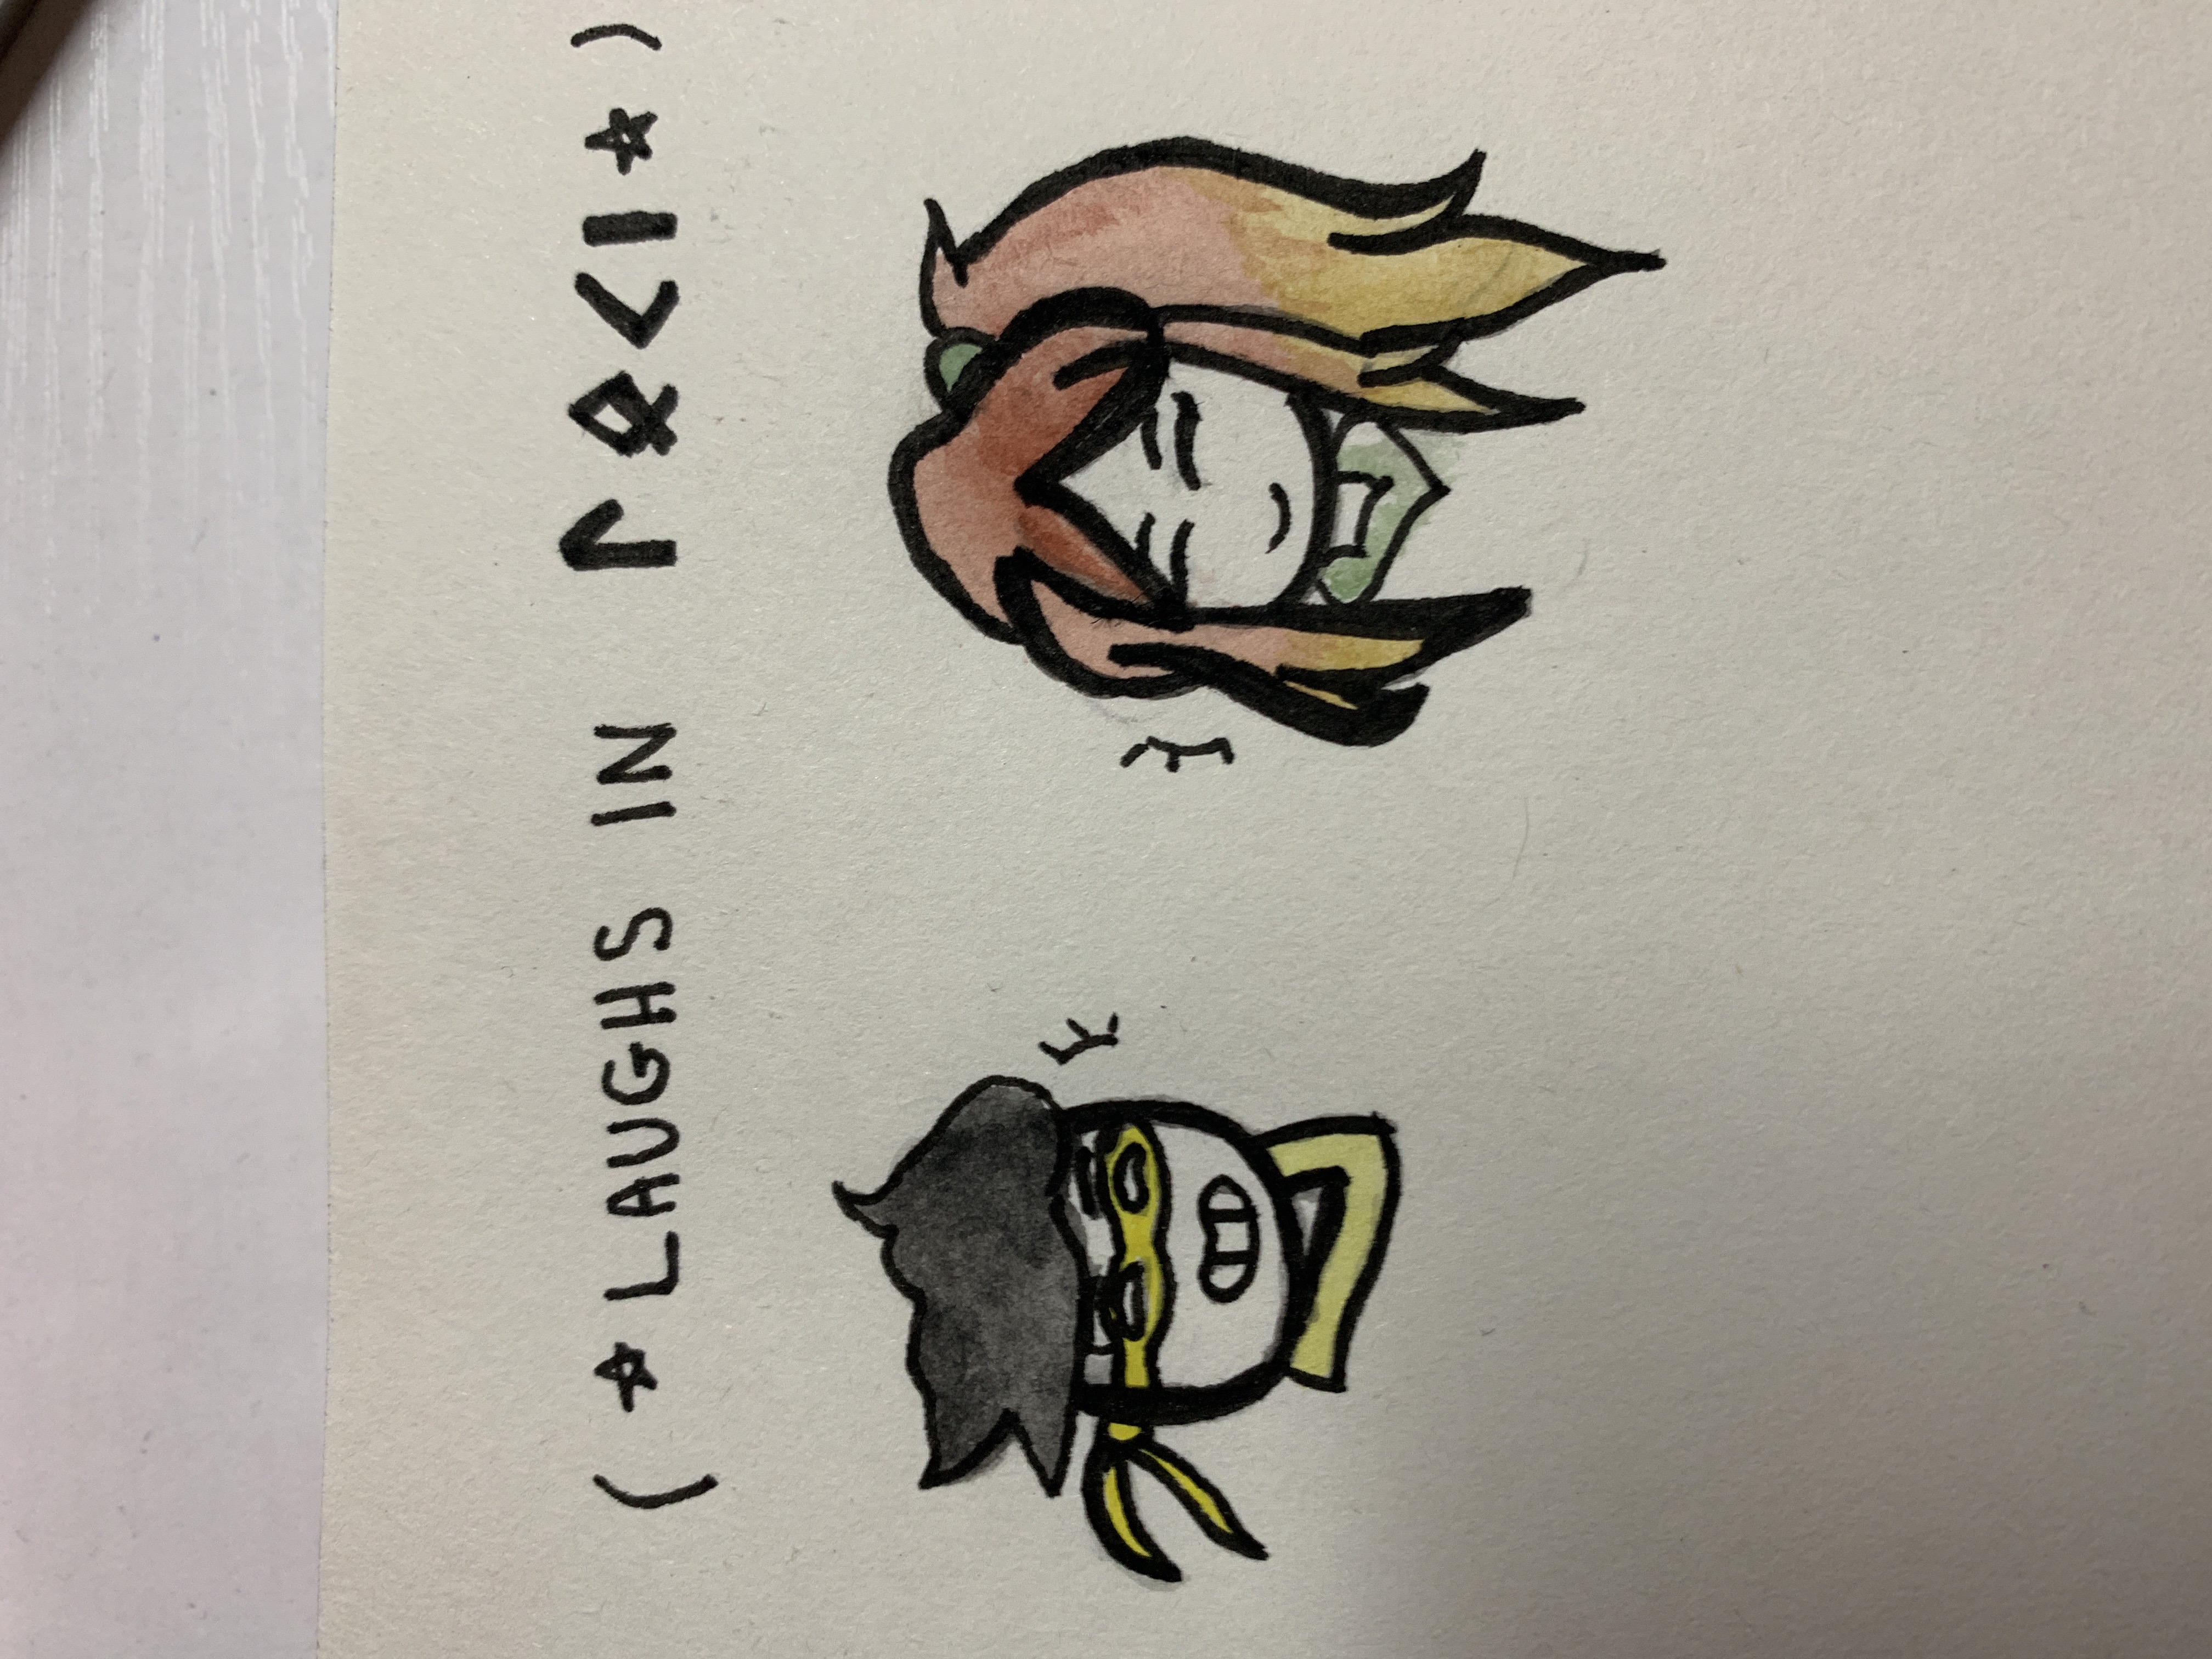 ( ☆ LAUGHS IN ᛚᛟᚲᛁ ☆ )